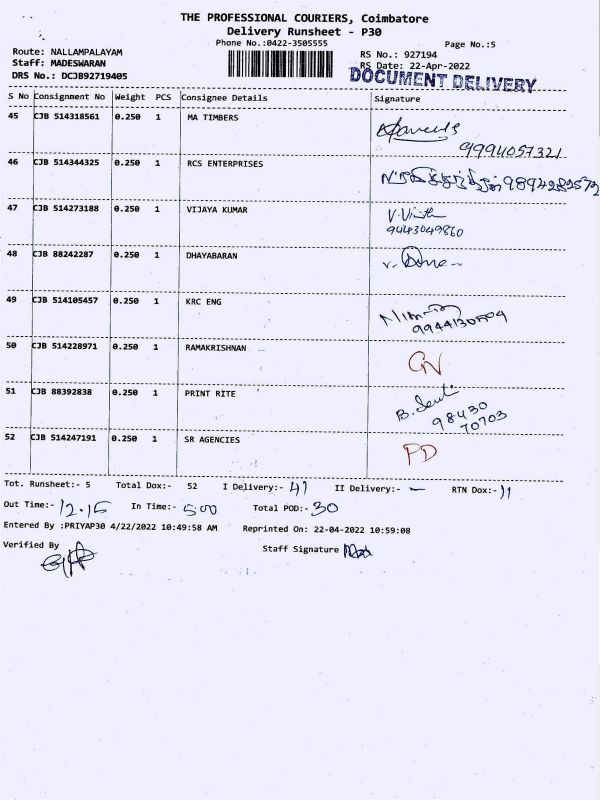 THE PROFESSIONAL COURIERS, Coimbatore
Delivery Runsheet - P30
Phone No.:0422-3505555
Page No.:5
Route: NALLAMPALAYAM
RS No.: 927194
Staff: MADESWARAN
RS Date: 22-Apr-2022
DRS No.: DCJB92719405
DOCUMENT DELIVERY
S No Consignment No Weight PCS Consignee Details Signature
45 CJB 514318561 0.250 1 MA TIMBERS
9994057321
46 CJB 514344325 0.250 1 RCS ENTERPRISES
47 CJB 514273188 0.250 1 VIJAYA KUMAR V.Vinith
9443049860
48 CJB 88242287 0.250 1 DHAYABARAN
49 CJB 514105457 0.250 1 KRC ENG
50 CJB 514228971 0.250 1 RAMAKRISHNAN
51 CJB 88392838 0.250 1 PRINT RITE
98430
70703
52 CJB 514247191 0.250 1 SR AGENCIES PD
Tot. Runsheet:- 5 Total Dox:- 52 I Delivery:- 41 II Delivery:- — RTN Dox:- 11
Out Time:- 12.15 In Time:- 5.00 Total POD:- 30
Entered By :PRIYAP30 4/22/2022 10:49:58 AM Reprinted On: 22-04-2022 10:59:08
Verified By
Staff Signature